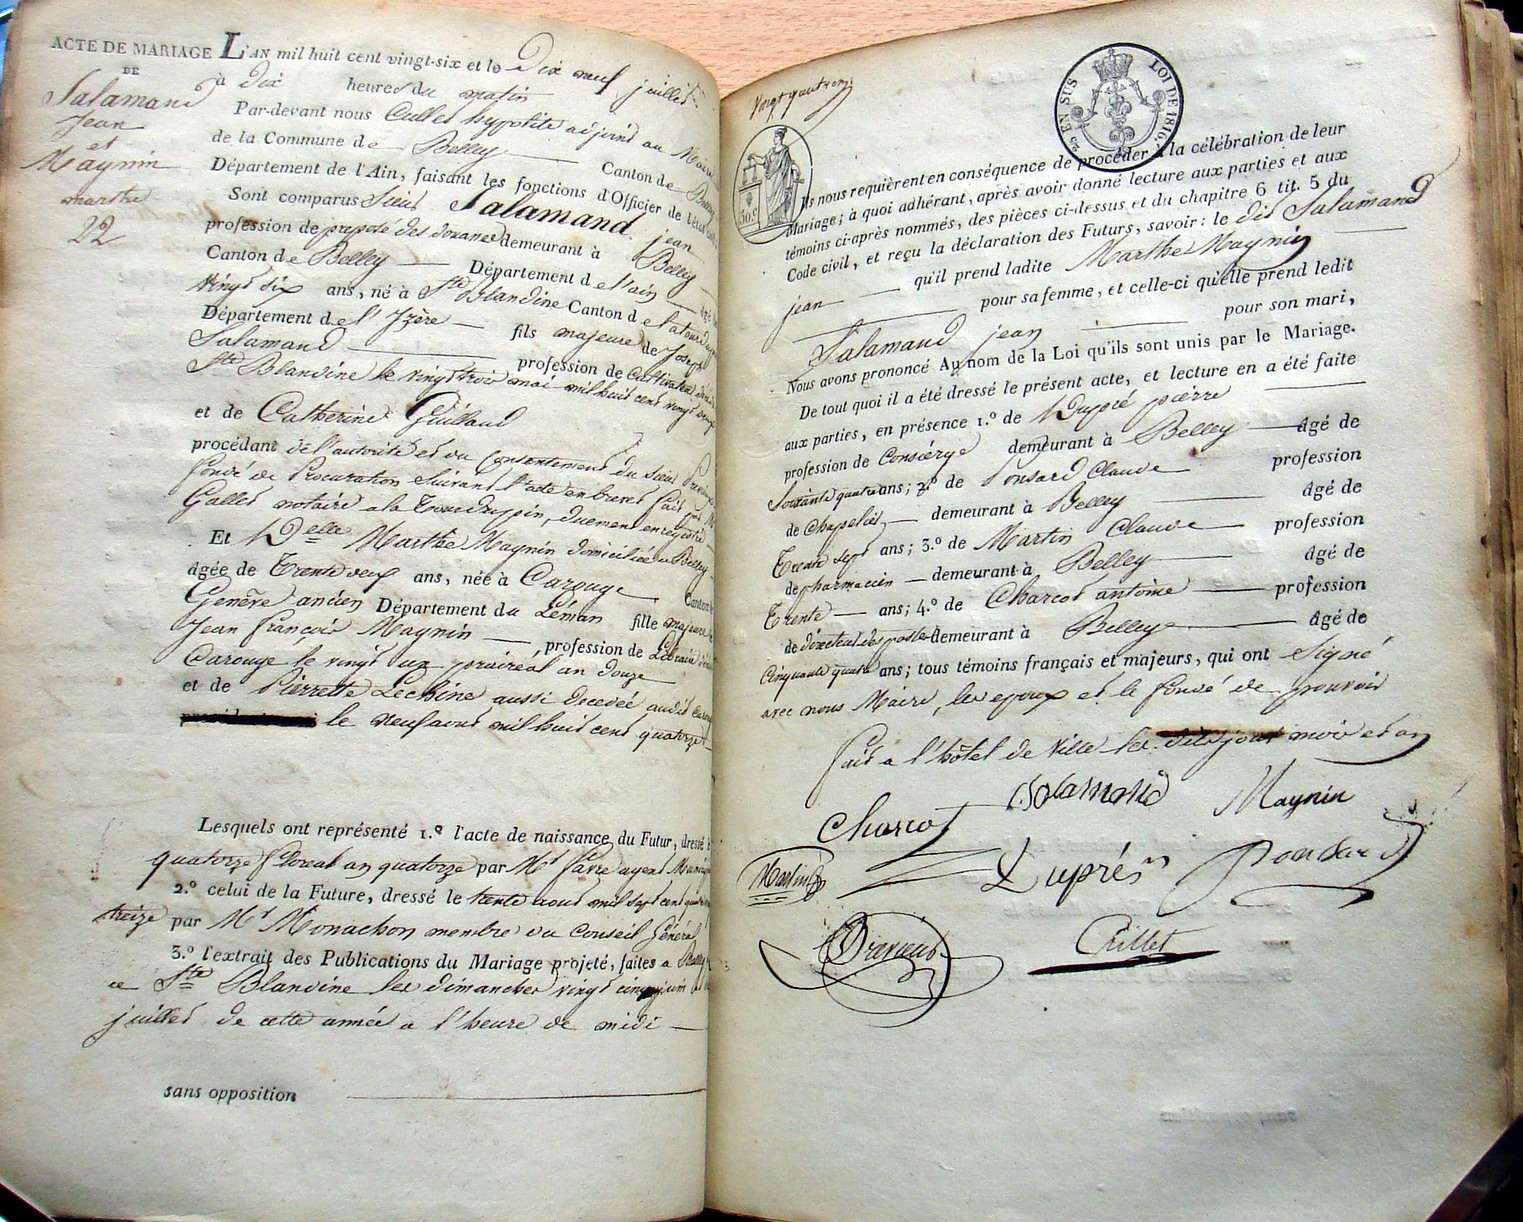 ACTE DE MARIAGE
DE
Salamand
Jean
et
Maynin
marthe
22
L'AN mil huit cent vingt-six et le Dix neuf juillet
à dix heures du matin
Par-devant nous Cullet hypolite adjoint au Maire
de la Commune de Belley Canton de Belley
Département de l'Ain, faisant les fonctions d'Officier de l'état
Sont comparus Sieur Salamand jean
profession de preposé des douanes demeurant à Belley
Canton de Belley Département de l'ain agé de
vingt six ans, né à Ste Blandine Canton de latour
Département de l'Izère fils majeur de Joseph
Salamand profession de Cultivateur
Ste Blandine le vingt trois mai mil huit cent vingt
et de Catherine Guillaud
procédant de l'autorité et du consentement du sieur
fondé de Procuration suivant l'acte en brevet fait par Me
Gallet notaire a la Tour dupin, duement enregistré
Et Delle Marthe Maynin domiciliée a Belley
agée de Trente deux ans, née à Carouge Canton de
Genêve ancien Département du Léman fille majeure de
Jean françois Maynin profession de
Carouge le vingt un prairéal an douze
et de Pierrette Lechine aussi decedée audit
le neuf aout mil huit cent quatorze
Lesquels ont représenté 1.º l'acte de naissance du Futur, dressé le
quatorze floreal an quatorze par Mr favre agent
2.º celui de la Future, dressé le trente aout mil sept cent quatre
treize par Mr Monachon membre du Conseil Général
3.º l'extrait des Publications du Mariage projeté, faites a Belley
a Ste Blandine les dimanches vingt cinq juin
juillet de cette année a l'heure de midi
sans opposition
EN SUS
LOI DE 1816
50.c
Ils nous requièrent en conséquence de procéder à la célébration de leur
Mariage; à quoi adhérant, après avoir donné lecture aux parties et aux
témoins ci-après nommés, des pièces ci-dessus et du chapitre 6 tit. 5 du
Code civil, et reçu la déclaration des Futurs, savoir: le dit Salamand
jean qu'il prend ladite Marthe Maynin
pour sa femme, et celle-ci qu'elle prend ledit
Salamand jean pour son mari,
Nous avons prononcé Au nom de la Loi qu'ils sont unis par le Mariage.
De tout quoi il a été dressé le présent acte, et lecture en a été faite
aux parties, en présence 1.º de Dupré pierre
profession de Consiérge demeurant à Belley agé de
Soixante quatre ans; 2.º de Ponsard Claude profession
de Chapelier demeurant à Belley agé de
Trente sept ans; 3.º de Martin Claude profession
de pharmacien demeurant à Belley agé de
Trente ans; 4.º de Charcot antoine profession
de directeur des postes demeurant à Belley agé de
Cinquante quatre ans; tous témoins français et majeurs, qui ont signé
avec nous Maire, les epoux et le fondé de pouvoir
fait a l'hôtel de ville les dits jour mois et an
J Salamand Maynin
Charcot
Martin Dupré Ponsard
Cullet